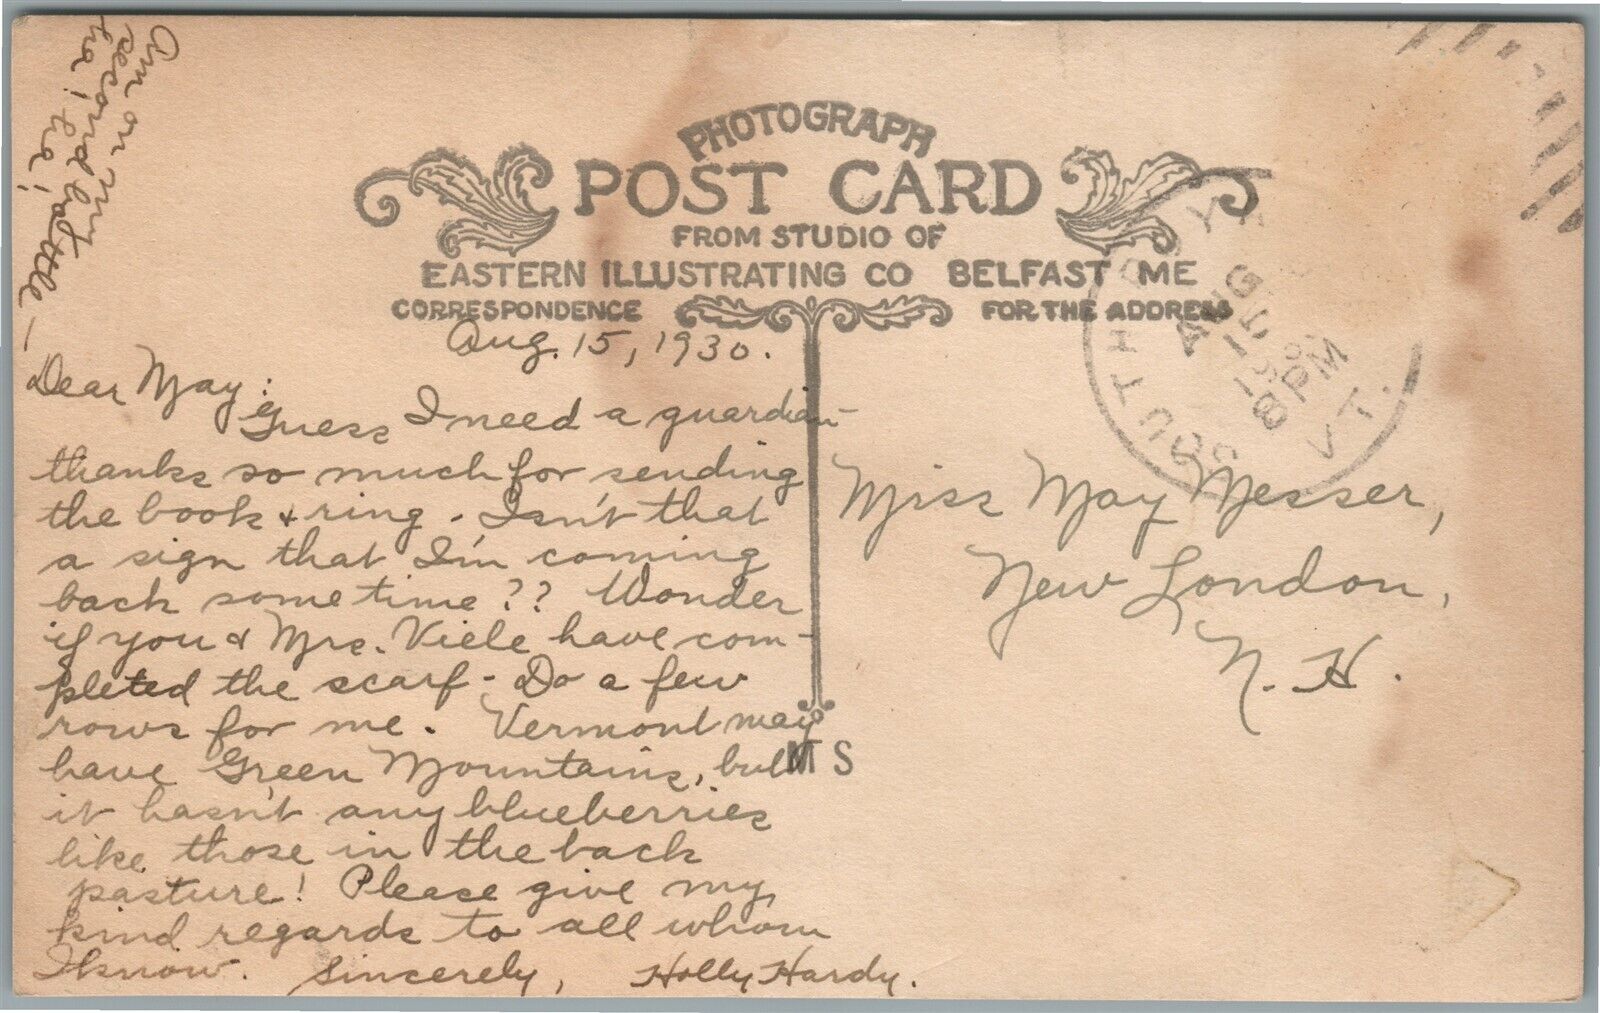 Am on my
second bottle –
ha! ha!
PHOTOGRAPH
POST CARD
FROM STUDIO OF
EASTERN ILLUSTRATING CO BELFAST ME
CORRESPONDENCE
FOR THE ADDRESS
Aug. 15, 1930.
Dear May:
Guess I need a guardian –
thanks so much for sending
the book & ring. Isn't that
a sign that I'm coming
back sometime?? Wonder
if you & Mrs. Viele have com-
pleted the scarf – Do a few
rows for me. Vermont may
have Green Mountains, but
it hasn't any blueberries
like those in the back
pasture! Please give my
kind regards to all whom
I know. Sincerely, Holly Hardy.
M S
SOUTH
AUG
15
8 PM
VT.
Miss May Messer,
New London,
N. H.